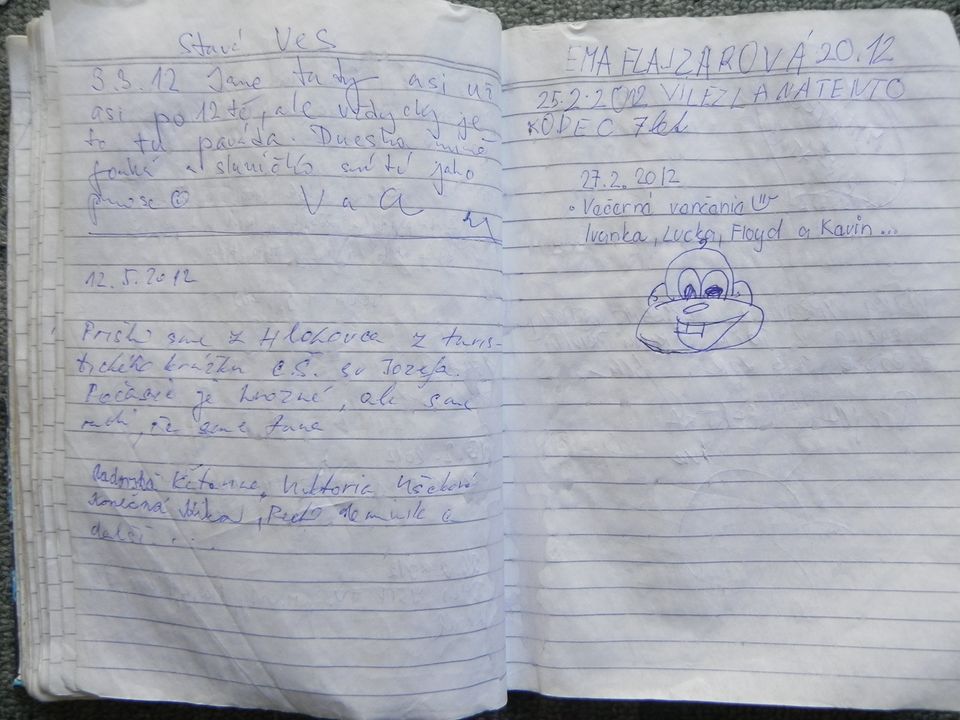 Stará Ves
3.3.12 Jsme tady asi už
asi po 12té, ale vždycky je
to tu paráda. Dneska
fouká a sluníčko svítí jako
V a A
12.5.2012
Prišli sme z Hlohovca z turis-
tického krúžku C.Š. sv Jozefa.
Počasie je hrozné, ale sme
radi, že sme tuna
Viktoria
Konečná
ďalší ...
EMA FLAJZAROVÁ 20.12
25.2.2012 VILEZLA NA TENTO
KOPEC 7let
27.2.2012
• Večerná venčenie
Ivanka, Lucka, Floyd a Kavin...